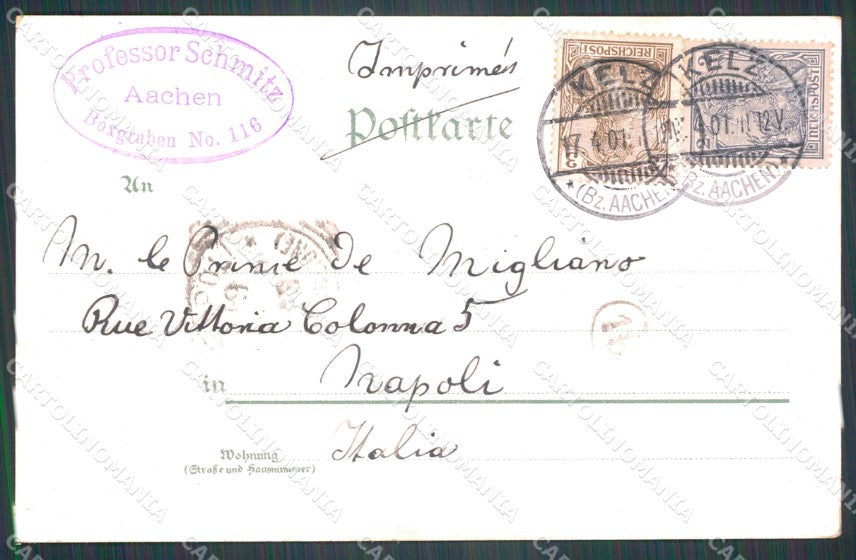 Professor Schmitz
Aachen
Boxgraben No. 116
Imprimés
Postkarte
REICHSPOST
REICHSPOST
KELZ
17 4 01
(Bz. AACHEN)
KELZ
4 01 11 12 V.
(Bz. AACHEN)
An
M. le Prince de Migliano
Rue Vittoria Colonna 5
in Napoli
Italia
Wohnung
(Straße und Hausnummer)
CARTOLINOMANIA